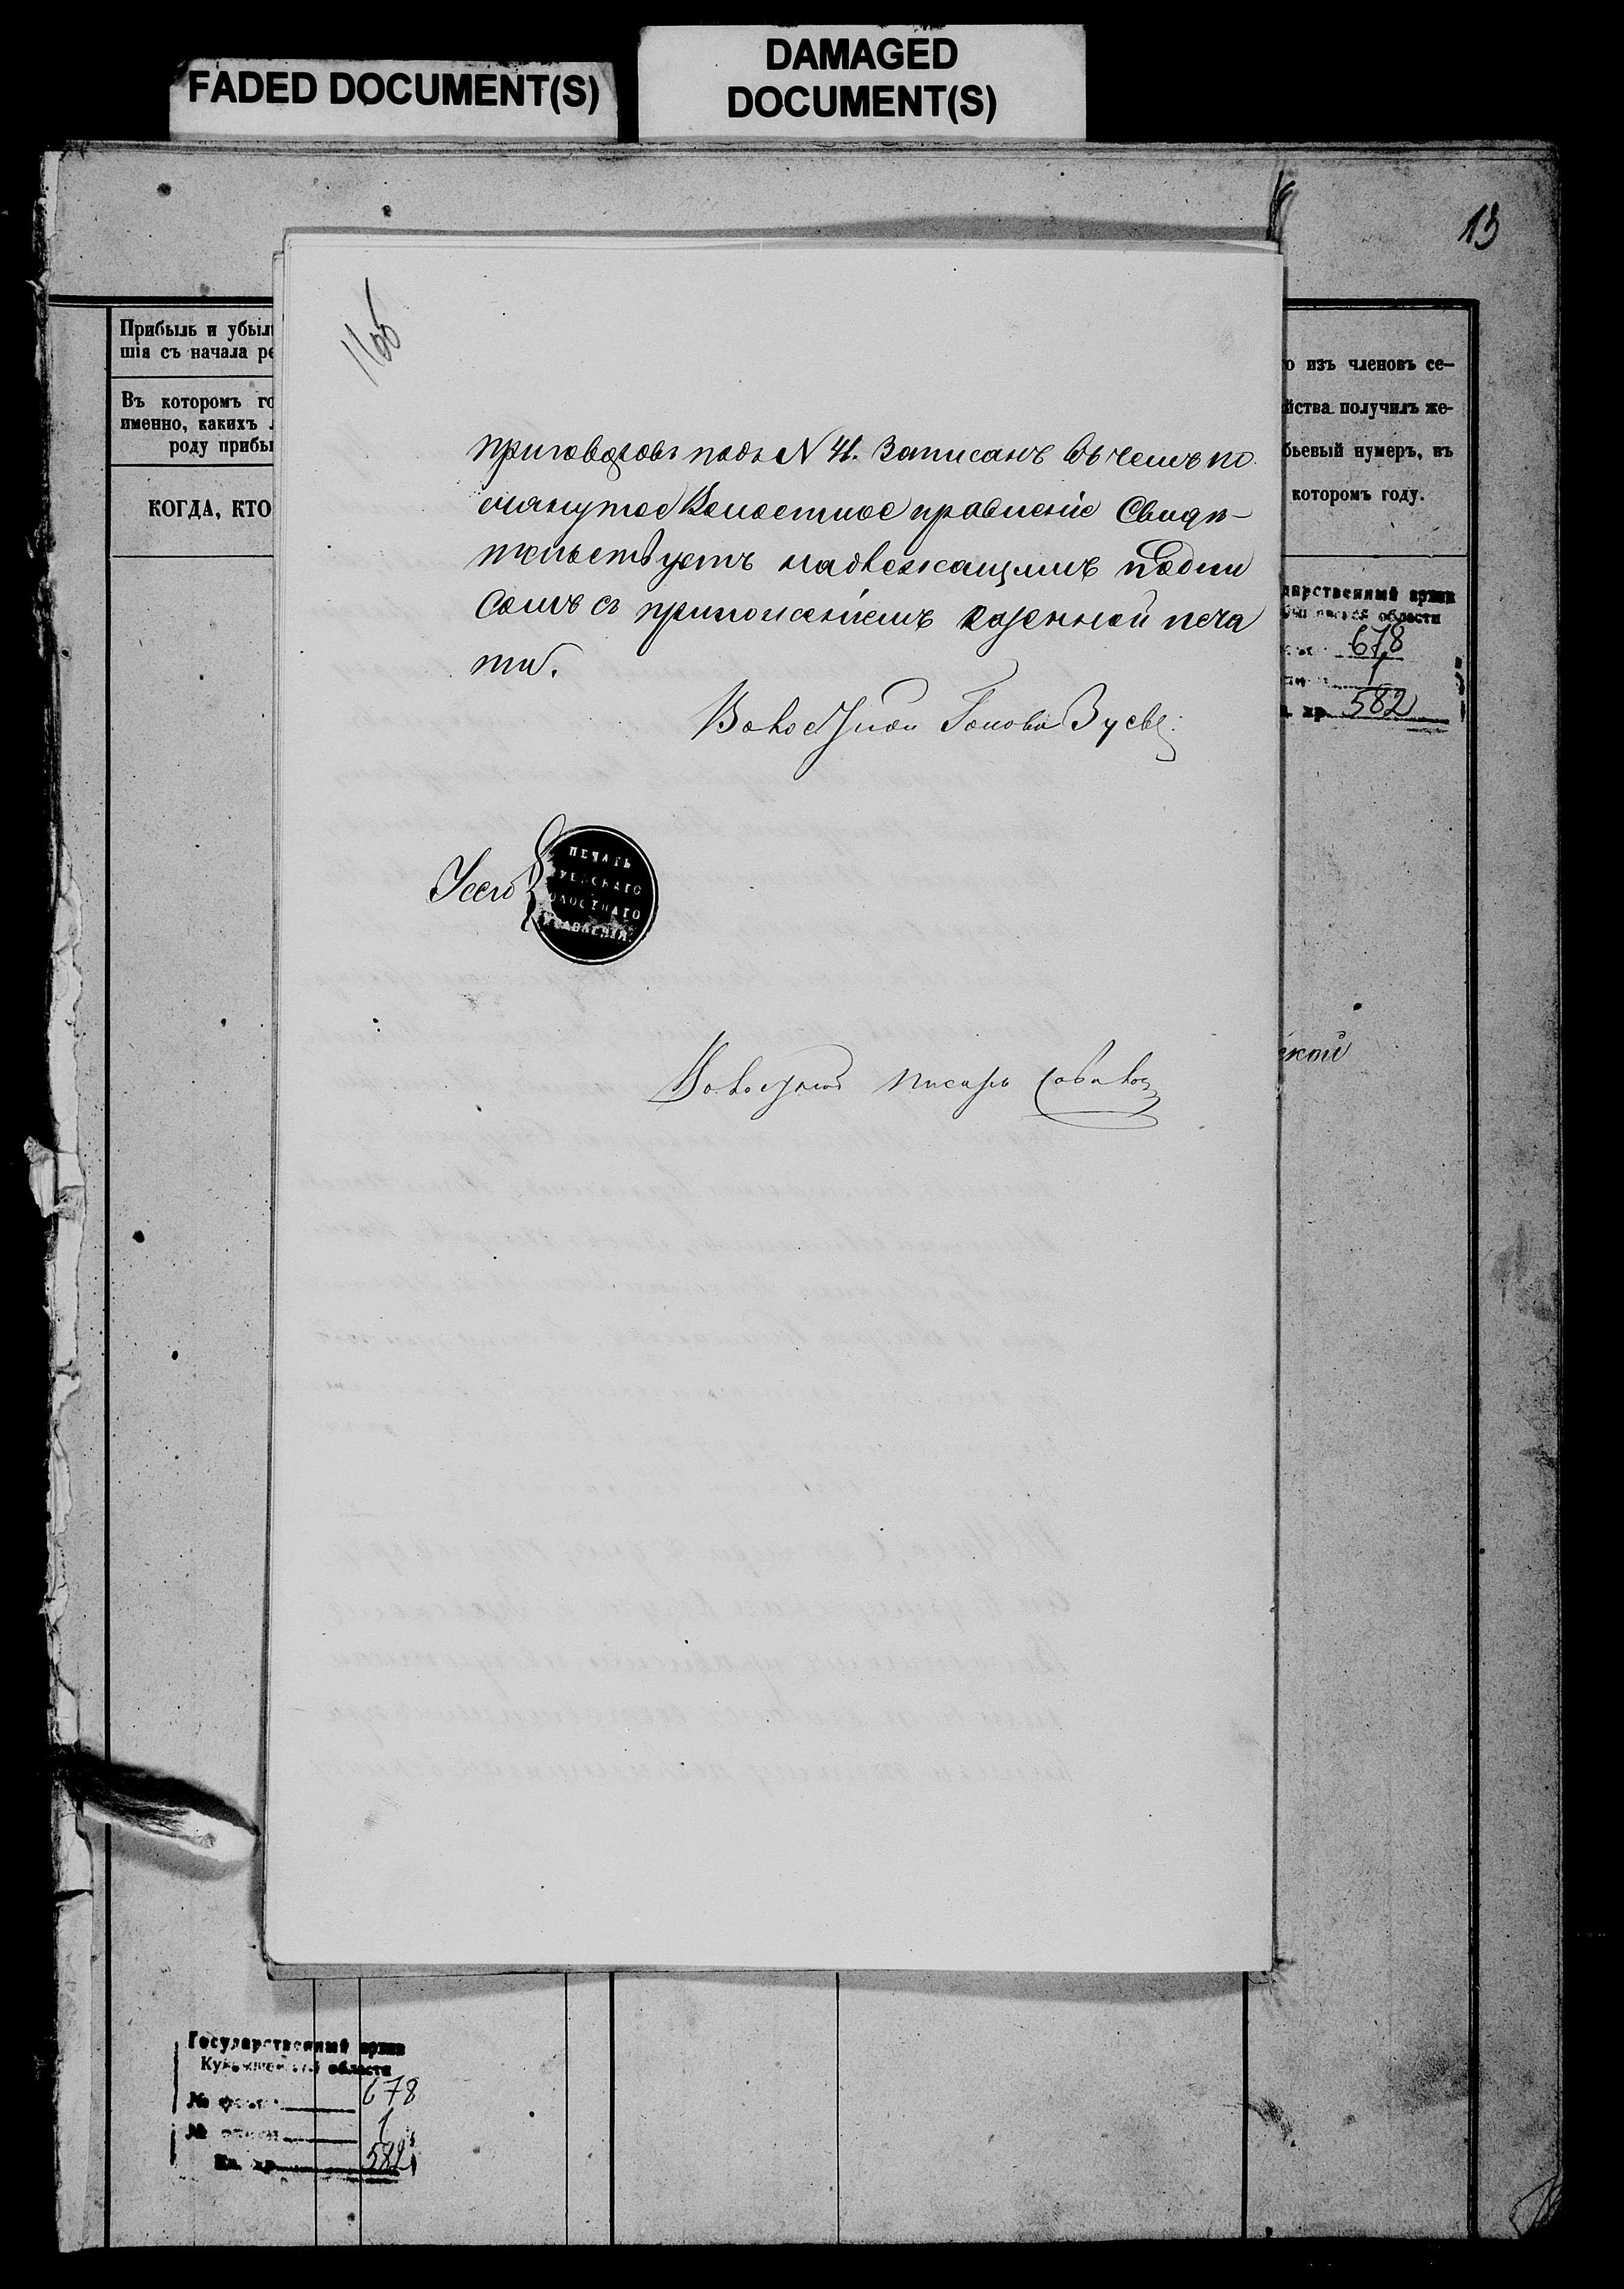 FADED DOCUMENT(S)
DAMAGED
DOCUMENT(S)
13
Прибыль и убыл
шія съ начала ре
Въ которомъ го
именно, какихъ
роду прибы
КОГДА, КТО
о изъ членовъ се-
йства получилъ же-
бьевый нумеръ, въ
которомъ году.
11об
приговоровъ подъ N 41. записанъ въ чемъ по
мянутое Волостное правленіе Свидѣ-
тельствуетъ надлежащимъ подпи
сомъ съ приложеніемъ казенной печа
ти.
Волостной Голова Зуевъ
ПЕЧАТЬ
УЕВСКАГО
ОЛОСТНАГО
ПРАВЛЕНІЯ.
Волостной писарь
ской
дарственный архив
области
678
1
хр. 582
Государственный архив
Куйбышевской области
№ фонда 678
№ описи 1
Ед. хр. 582